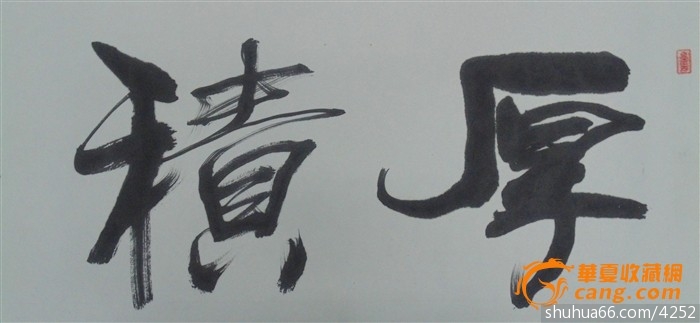 厚積
華夏收藏網
cang.com
shuhua66.com/4252